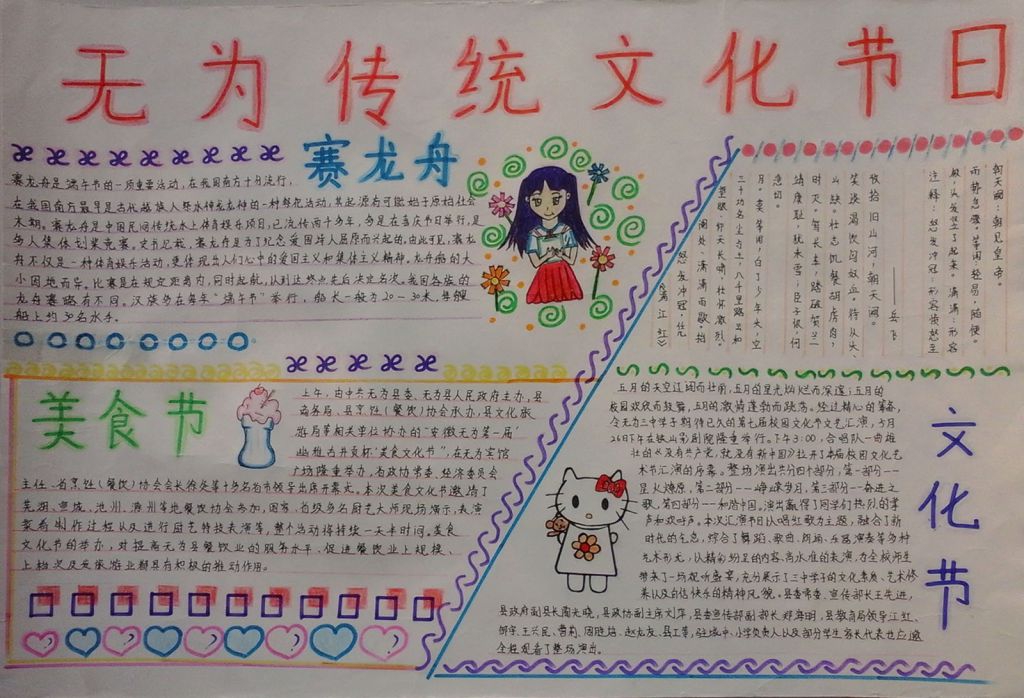 无为传统文化节日
赛龙舟
赛龙舟是端午节的一项重要活动,在我国南方十分流行,
在我国南方最早是古代越族人祭水神龙龙神的一种祭祀活动,其起源有可能始于原始社会
末期。赛龙舟是中国民间传统水上体育娱乐项目,已流传两千多年,多是在喜庆节日举行,是
多人集体划桨竞赛。史书记载,赛龙舟是为了纪念爱国诗人屈原而兴起的,由此可见,赛龙
舟不仅是一种体育娱乐活动,更体现出人们心中的爱国主义和集体主义精神。龙舟船的大
小因地而异。比赛是在规定距离内,同时起航,以到达终点先后决定名次。我国各族的
龙舟赛略有不同。汉族多在每年“端午节”举行,船长一般为20—30米,每艘
船上约30名水手。
朝天阙:朝见皇帝。
而静怠慢。等闲:轻易,随便。
注释:怒发冲冠:形容愤怒至
——岳飞
收拾旧山河,朝天阙。
笑谈渴饮匈奴血。待从头、
山缺。壮志饥餐胡虏肉,
时灭。驾长车,踏破贺兰
靖康耻,犹未雪;臣子恨,何
悲切。
月。莫等闲,白了少年头,空
三十功名尘与土,八千里路云和
望眼,仰天长啸,壮怀激烈。
阑处、潇潇雨歇。抬
怒发冲冠,凭
《满江红》
美食节
上午,由中共无为县委、无为县人民政府主办,县
商务局、县烹饪(餐饮)协会承办,县文化旅
游局等相关单位协办的“安徽无为第一届
”,在无为宾馆
广场隆重举办。省政协常委、经济委员会
主任、省烹饪(餐饮)协会会长
出席开幕式。本次美食文化节邀请了
芜湖、宣城、池州、滁州等地餐饮协会参加,国家、省级多名厨艺大师现场演示,表演
菜肴制作过程以及进行厨艺特技表演等,整个活动将持续一天半时间。美食
文化节的举办,对提高无为县餐饮业的服务水平、促进餐饮业上规模、
上档次及发展旅游业都具有积极的推动作用。
文化节
五月的天空辽阔而壮丽,五月的星光灿烂而深邃;五月的
校园欢欣而鼓舞,五月的歌声蓬勃而跌宕。经过精心的筹备,
令无为三中学子期待已久的第七届校园文化节文艺汇演,5月
26日下午在
隆重举行。下午3:00,合唱队一曲雄
壮的《没有共产党,就没有新中国》拉开了本届校园文化艺
术节汇演的序幕。整场演出共分四个部分,第一部分——
星火燎原,第二部分——峥嵘岁月,第三部分——奋进之
歌,第四部分——和谐中国,演出赢得了同学们热烈的掌
声和欢呼声。本次汇演节目以唱红歌为主题,融合了新
时代的气息,综合了舞蹈、歌曲、朗诵、乐器演奏等多种
艺术形式,以精彩纷呈的内容、高水准的表演,为全校师生
带来了一场视听盛宴,充分展示了三中学子的文化素质、艺术修
养以及自信快乐的精神风貌。县委常委、宣传部长王先进,
县政府副县长
、县政协副主席
、县委宣传部副部长郑海明,县教育局领导江红、
小学负责人以及部分学生家长代表也应邀
全程观看了整场演出。